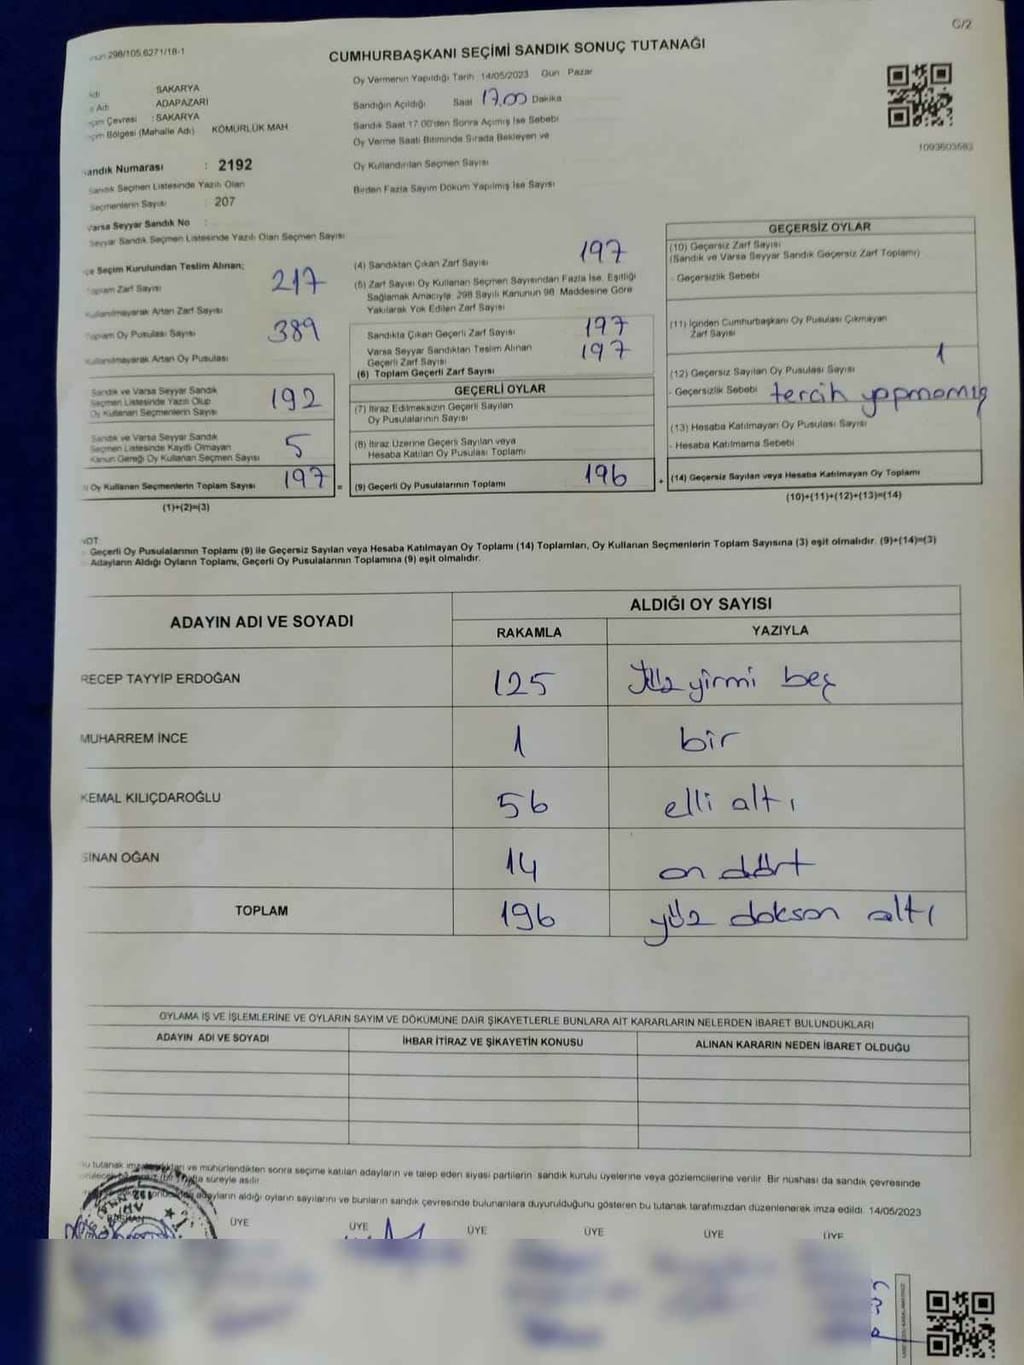 G/2
298/105.6271/18-1
CUMHURBAŞKANI SEÇİMİ SANDIK SONUÇ TUTANAĞI
SAKARYA
Adı ADAPAZARI
Çevresi : SAKARYA
Bölgesi (Mahalle Adı) KÖMÜRLÜK MAH.
Sandık Numarası : 2192
Sandık Seçmen Listesinde Yazılı Olan
Seçmenlerin Sayısı : 207
Varsa Seyyar Sandık No :
Seyyar Sandık Seçmen Listesinde Yazılı Olan Seçmen Sayısı
Oy Vermenin Yapıldığı Tarih 14/05/2023 Gün Pazar
Sandığın Açıldığı Saat 17.00 Dakika
Sandık Saat 17:00'den Sonra Açmış İse Sebebi
Oy Verme Saati Bitiminde Sırada Bekleyen ve
Oy Kullandırılan Seçmen Sayısı
Birden Fazla Sayım Döküm Yapılmış İse Sayısı
1093603583
İlçe Seçim Kurulundan Teslim Alınan;
Toplam Zarf Sayısı 217
Kullanılmayarak Artan Zarf Sayısı
Toplam Oy Pusulası Sayısı 389
Kullanılmayarak Artan Oy Pusulası
Sandık ve Varsa Seyyar Sandık
Seçmen Listesinde Yazılı Olup
Oy Kullanan Seçmenlerin Sayısı 192
Sandık ve Varsa Seyyar Sandık
Seçmen Listesinde Kayıtlı Olmayan
Kanun Gereği Oy Kullanan Seçmen Sayısı 5
Oy Kullanan Seçmenlerin Toplam Sayısı 197 =
(1)+(2)=(3)
(4) Sandıktan Çıkan Zarf Sayısı 197
(5) Zarf Sayısı Oy Kullanan Seçmen Sayısından Fazla İse, Eşitliği
Sağlamak Amacıyla, 298 Sayılı Kanunun 98. Maddesine Göre
Yakılarak Yok Edilen Zarf Sayısı
Sandıkta Çıkan Geçerli Zarf Sayısı 197
Varsa Seyyar Sandıktan Teslim Alınan
Geçerli Zarf Sayısı 197
(6) Toplam Geçerli Zarf Sayısı
GEÇERLİ OYLAR
(7) İtiraz Edilmeksizin Geçerli Sayılan
Oy Pusulalarının Sayısı
(8) İtiraz Üzerine Geçerli Sayılan veya
Hesaba Katılan Oy Pusulası Toplamı
(9) Geçerli Oy Pusulalarının Toplamı 196 +
GEÇERSİZ OYLAR
(10) Geçersiz Zarf Sayısı
(Sandık ve Varsa Seyyar Sandık Geçersiz Zarf Toplamı)
- Geçersizlik Sebebi
(11) İçinden Cumhurbaşkanı Oy Pusulası Çıkmayan
Zarf Sayısı
1
(12) Geçersiz Sayılan Oy Pusulası Sayısı
- Geçersizlik Sebebi tercih yapmamış
(13) Hesaba Katılmayan Oy Pusulası Sayısı
- Hesaba Katılmama Sebebi
(14) Geçersiz Sayılan veya Hesaba Katılmayan Oy Toplamı
(10)+(11)+(12)+(13)=(14)
NOT:
Geçerli Oy Pusulalarının Toplamı (9) ile Geçersiz Sayılan veya Hesaba Katılmayan Oy Toplamı (14) Toplamları, Oy Kullanan Seçmenlerin Toplam Sayısına (3) eşit olmalıdır. (9)+(14)=(3)
Adayların Aldığı Oyların Toplamı, Geçerli Oy Pusulalarının Toplamına (9) eşit olmalıdır.
ADAYIN ADI VE SOYADI ALDIĞI OY SAYISI
RAKAMLA YAZIYLA
RECEP TAYYİP ERDOĞAN 125 Yüz yirmi beş
MUHARREM İNCE 1 bir
KEMAL KILIÇDAROĞLU 56 elli altı
SİNAN OĞAN 14 on dört
TOPLAM 196 yüz doksan altı
OYLAMA İŞ VE İŞLEMLERİNE VE OYLARIN SAYIM VE DÖKÜMÜNE DAİR ŞİKAYETLERLE BUNLARA AİT KARARLARIN NELERDEN İBARET BULUNDUKLARI
ADAYIN ADI VE SOYADI İHBAR İTİRAZ VE ŞİKAYETİN KONUSU ALINAN KARARIN NEDEN İBARET OLDUĞU
ve mühürlendikten sonra seçime katılan adayların ve talep eden siyasi partilerin sandık kurulu üyelerine veya gözlemcilerine verilir. Bir nüshası da sandık çevresinde
süreyle asılır.
adayların aldığı oyların sayılarını ve bunların sandık çevresinde bulunanlara duyurulduğunu gösteren bu tutanak tarafımızdan düzenlenerek imza edildi. 14/05/2023
ÜYE ÜYE ÜYE ÜYE ÜYE ÜYE